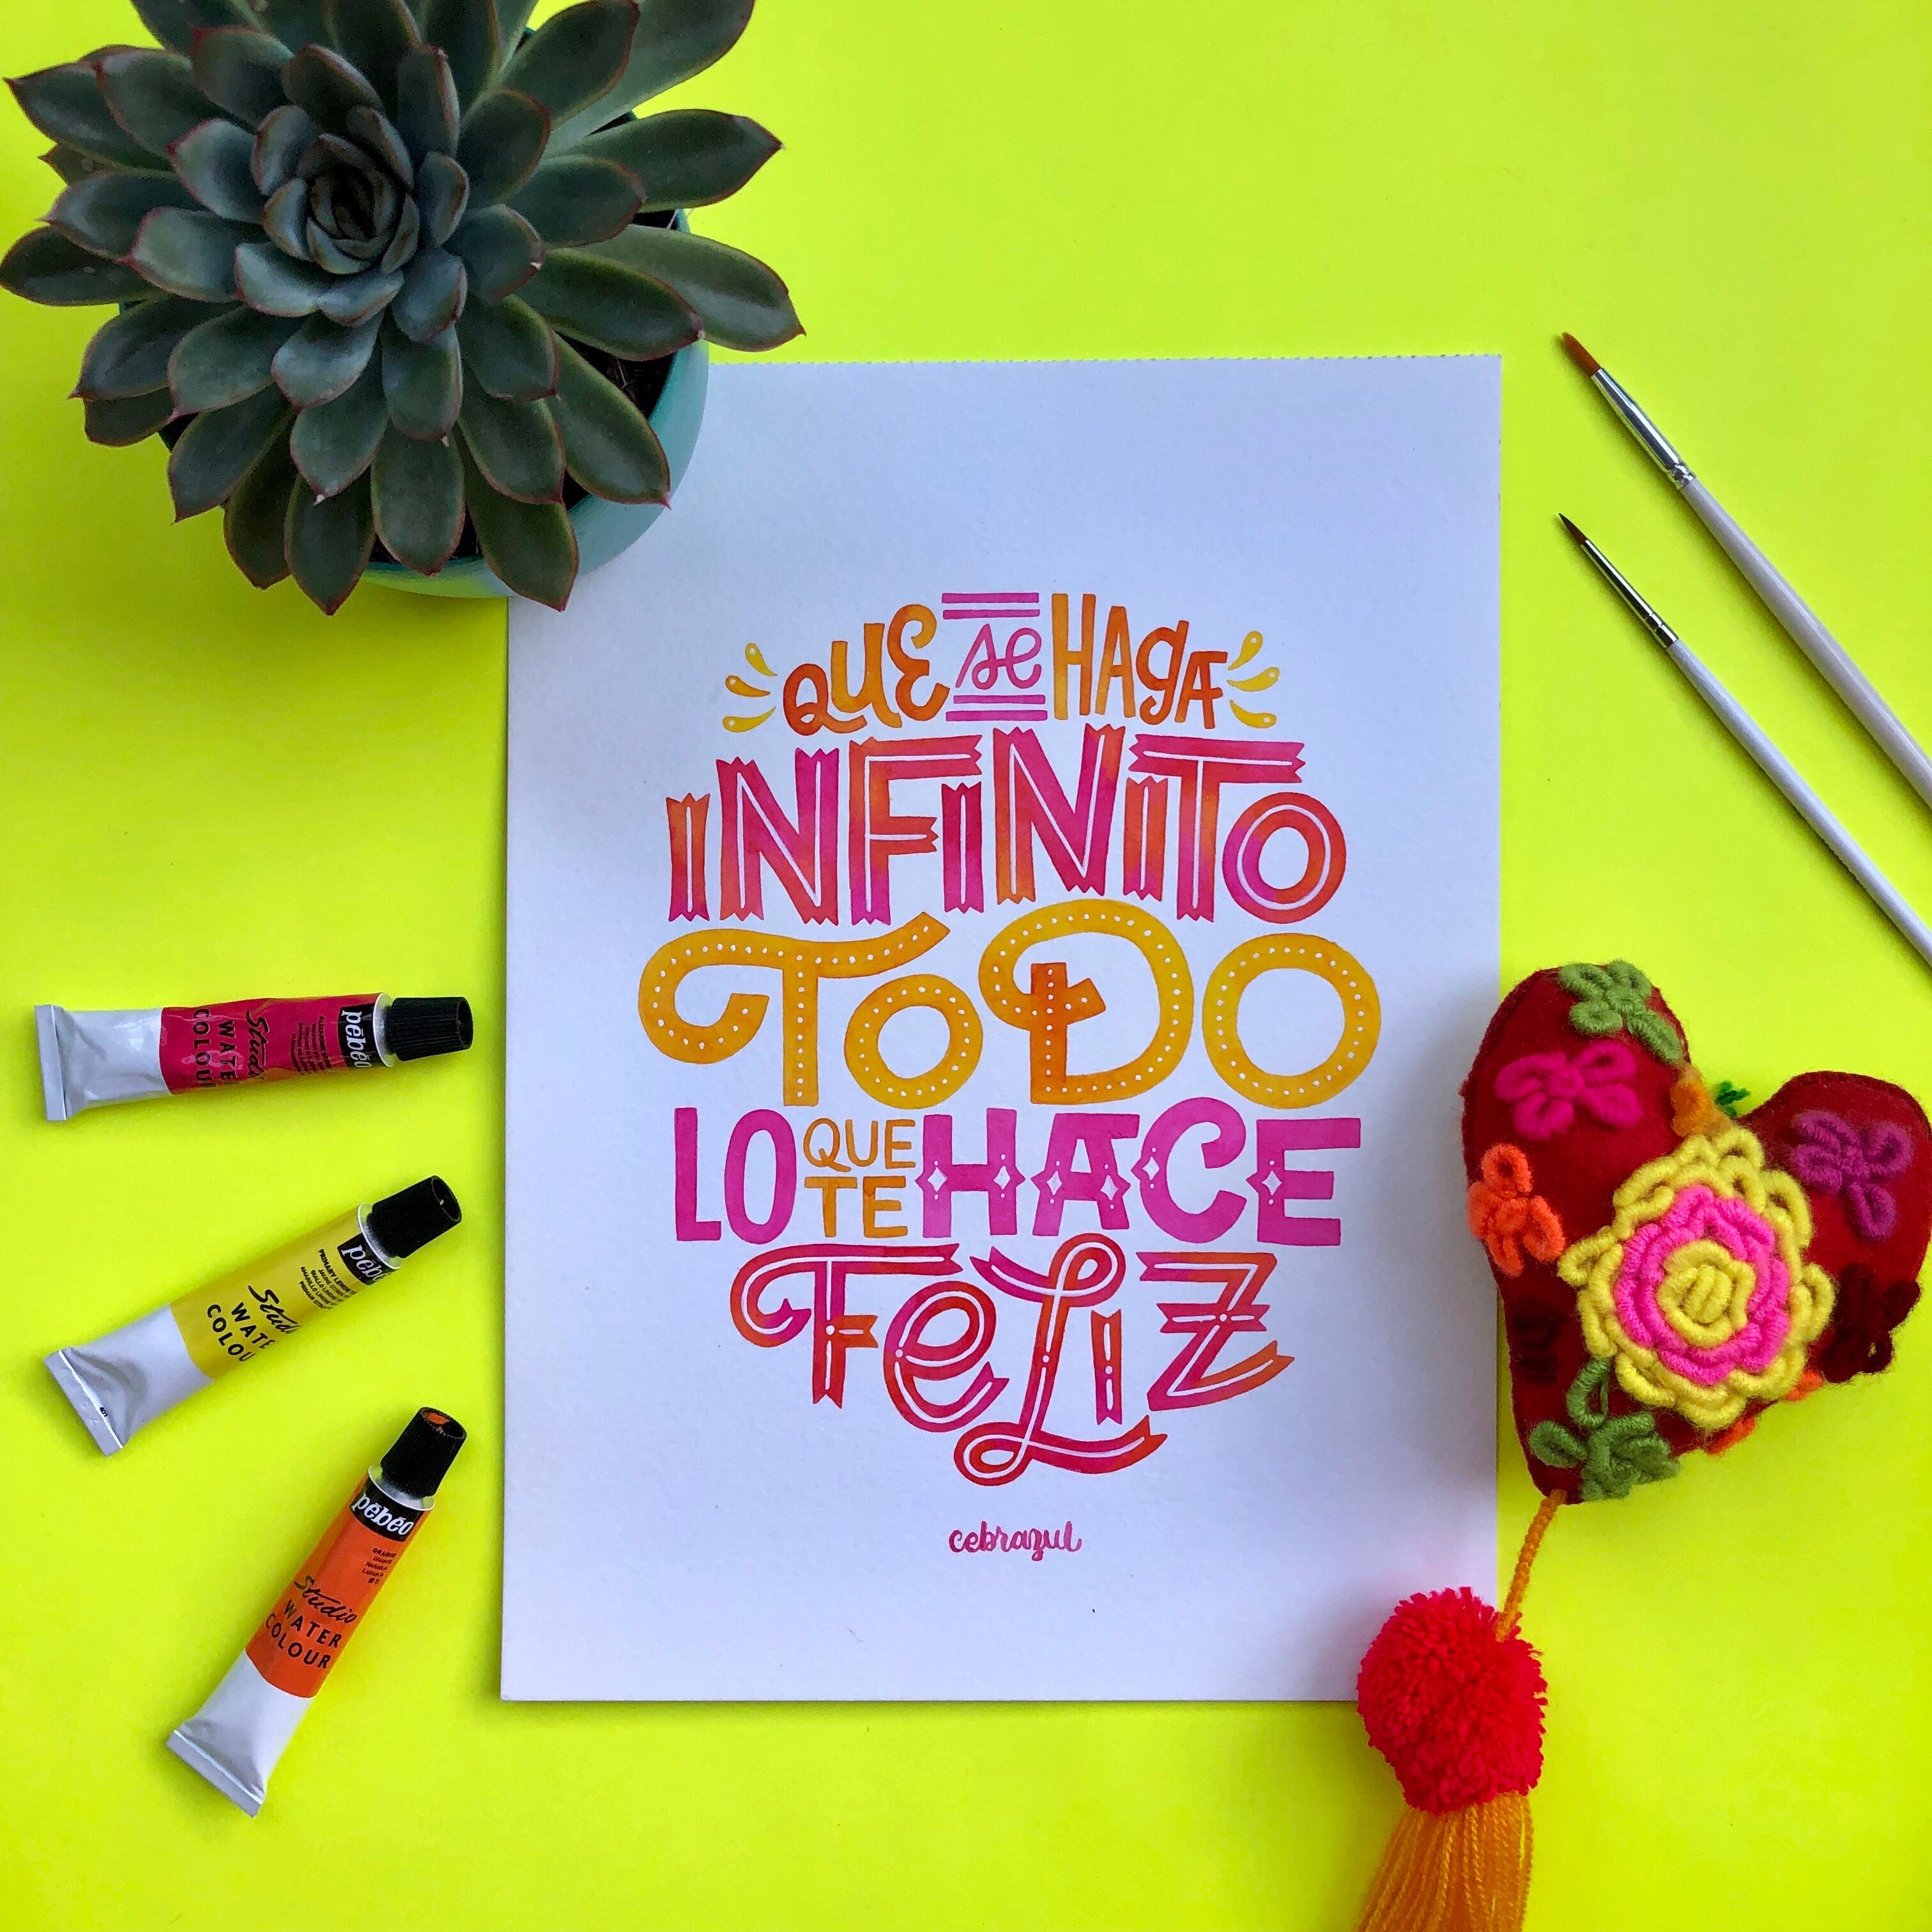 QUE se HAgA
INFINITO
ToDO
LO QUE TE HACE
FeLiZ
cebrazul
pébéo
Studio
WATER
COLOUR
pébéo
Studio
WATER
COLOUR
pébéo
ORANGE
Studio
WATER
COLOUR